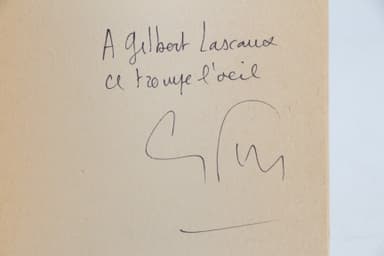 A Gilbert Lascaux
ce trompe l'oeil